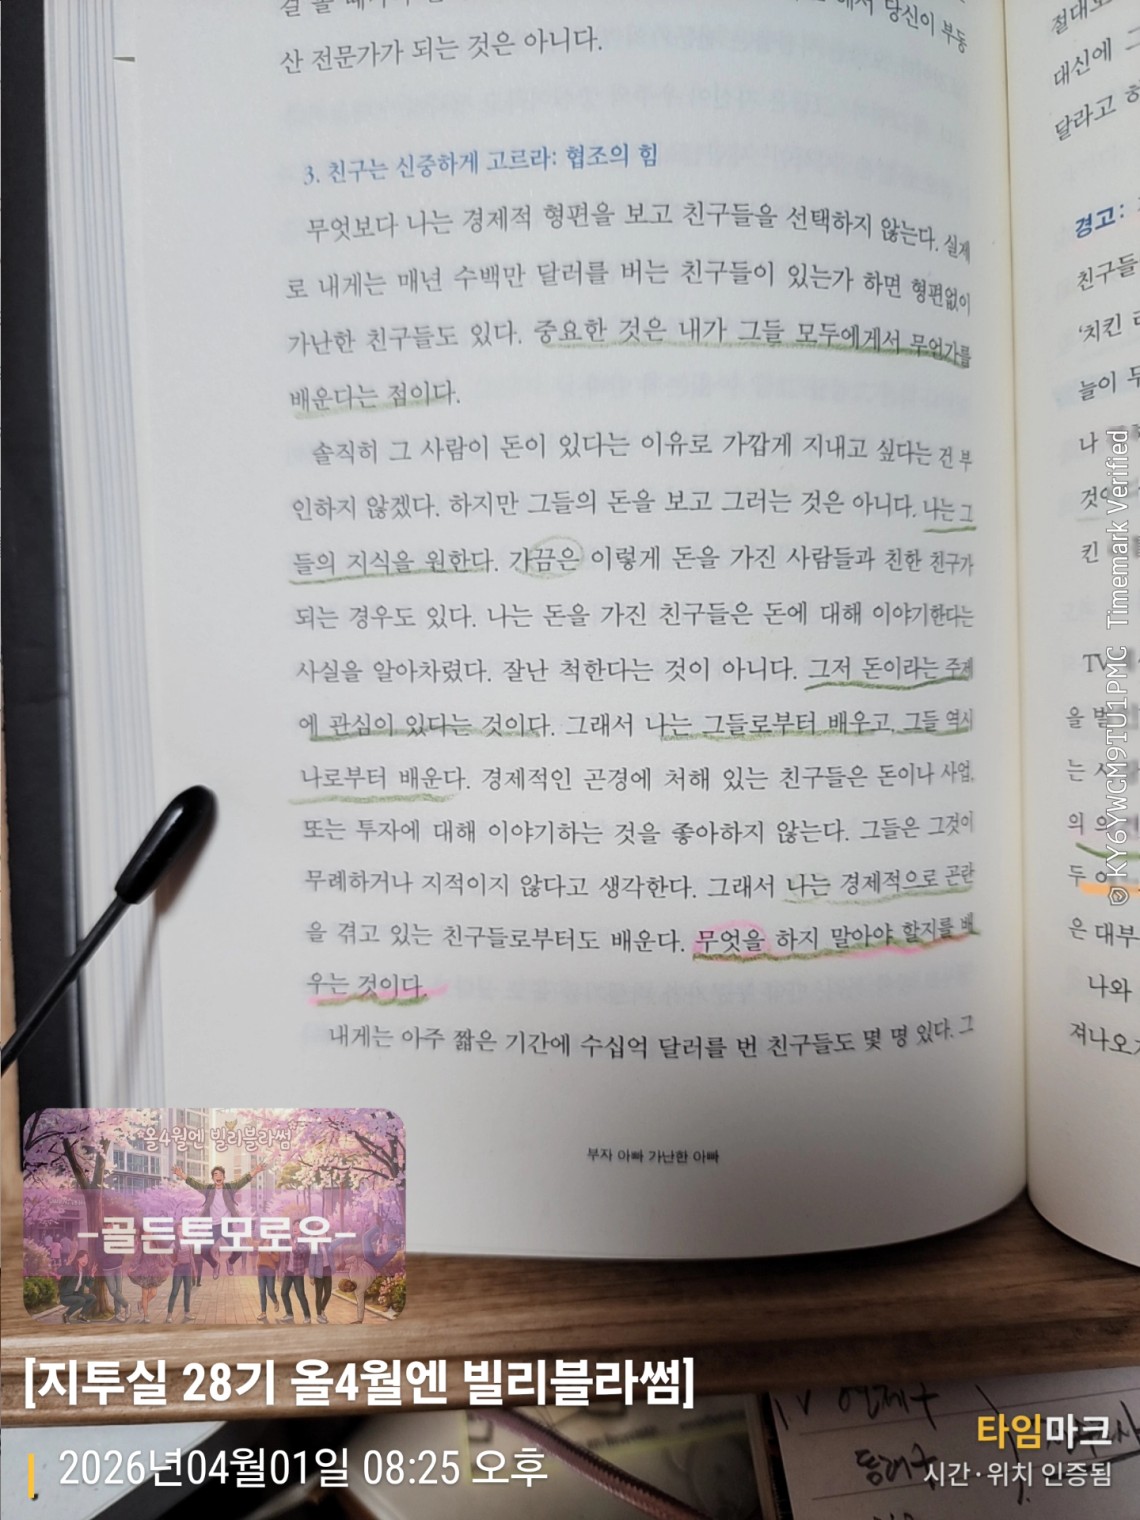 해서 당신이 부동
산 전문가가 되는 것은 아니다.
3. 친구는 신중하게 고르라: 협조의 힘
무엇보다 나는 경제적 형편을 보고 친구들을 선택하지 않는다. 실제
로 내게는 매년 수백만 달러를 버는 친구들이 있는가 하면 형편없이
가난한 친구들도 있다. 중요한 것은 내가 그들 모두에게서 무언가를
배운다는 점이다.
솔직히 그 사람이 돈이 있다는 이유로 가깝게 지내고 싶다는 건 부
인하지 않겠다. 하지만 그들의 돈을 보고 그러는 것은 아니다. 나는 그
들의 지식을 원한다. 가끔은 이렇게 돈을 가진 사람들과 친한 친구가
되는 경우도 있다. 나는 돈을 가진 친구들은 돈에 대해 이야기한다는
사실을 알아차렸다. 잘난 척한다는 것이 아니다. 그저 돈이라는 주제
에 관심이 있다는 것이다. 그래서 나는 그들로부터 배우고, 그들 역시
나로부터 배운다. 경제적인 곤경에 처해 있는 친구들은 돈이나 사업,
또는 투자에 대해 이야기하는 것을 좋아하지 않는다. 그들은 그것이
무례하거나 지적이지 않다고 생각한다. 그래서 나는 경제적으로 곤란
을 겪고 있는 친구들로부터도 배운다. 무엇을 하지 말아야 할지를 배
우는 것이다.
내게는 아주 짧은 기간에 수십억 달러를 번 친구들도 몇 명 있다. 그
부자 아빠 가난한 아빠
대신에
달라고
경고:
친구들
'치킨
늘이
나
킨
TV
을
는
의
두
은 대부
나와
져나오
© KY6YWCM9TU1PMC Timemark Verified
올4월엔 빌리블라썸
-골든투모로우-
[지투실 28기 올4월엔 빌리블라썸]
2026년04월01일 08:25 오후
타임마크
시간·위치 인증됨